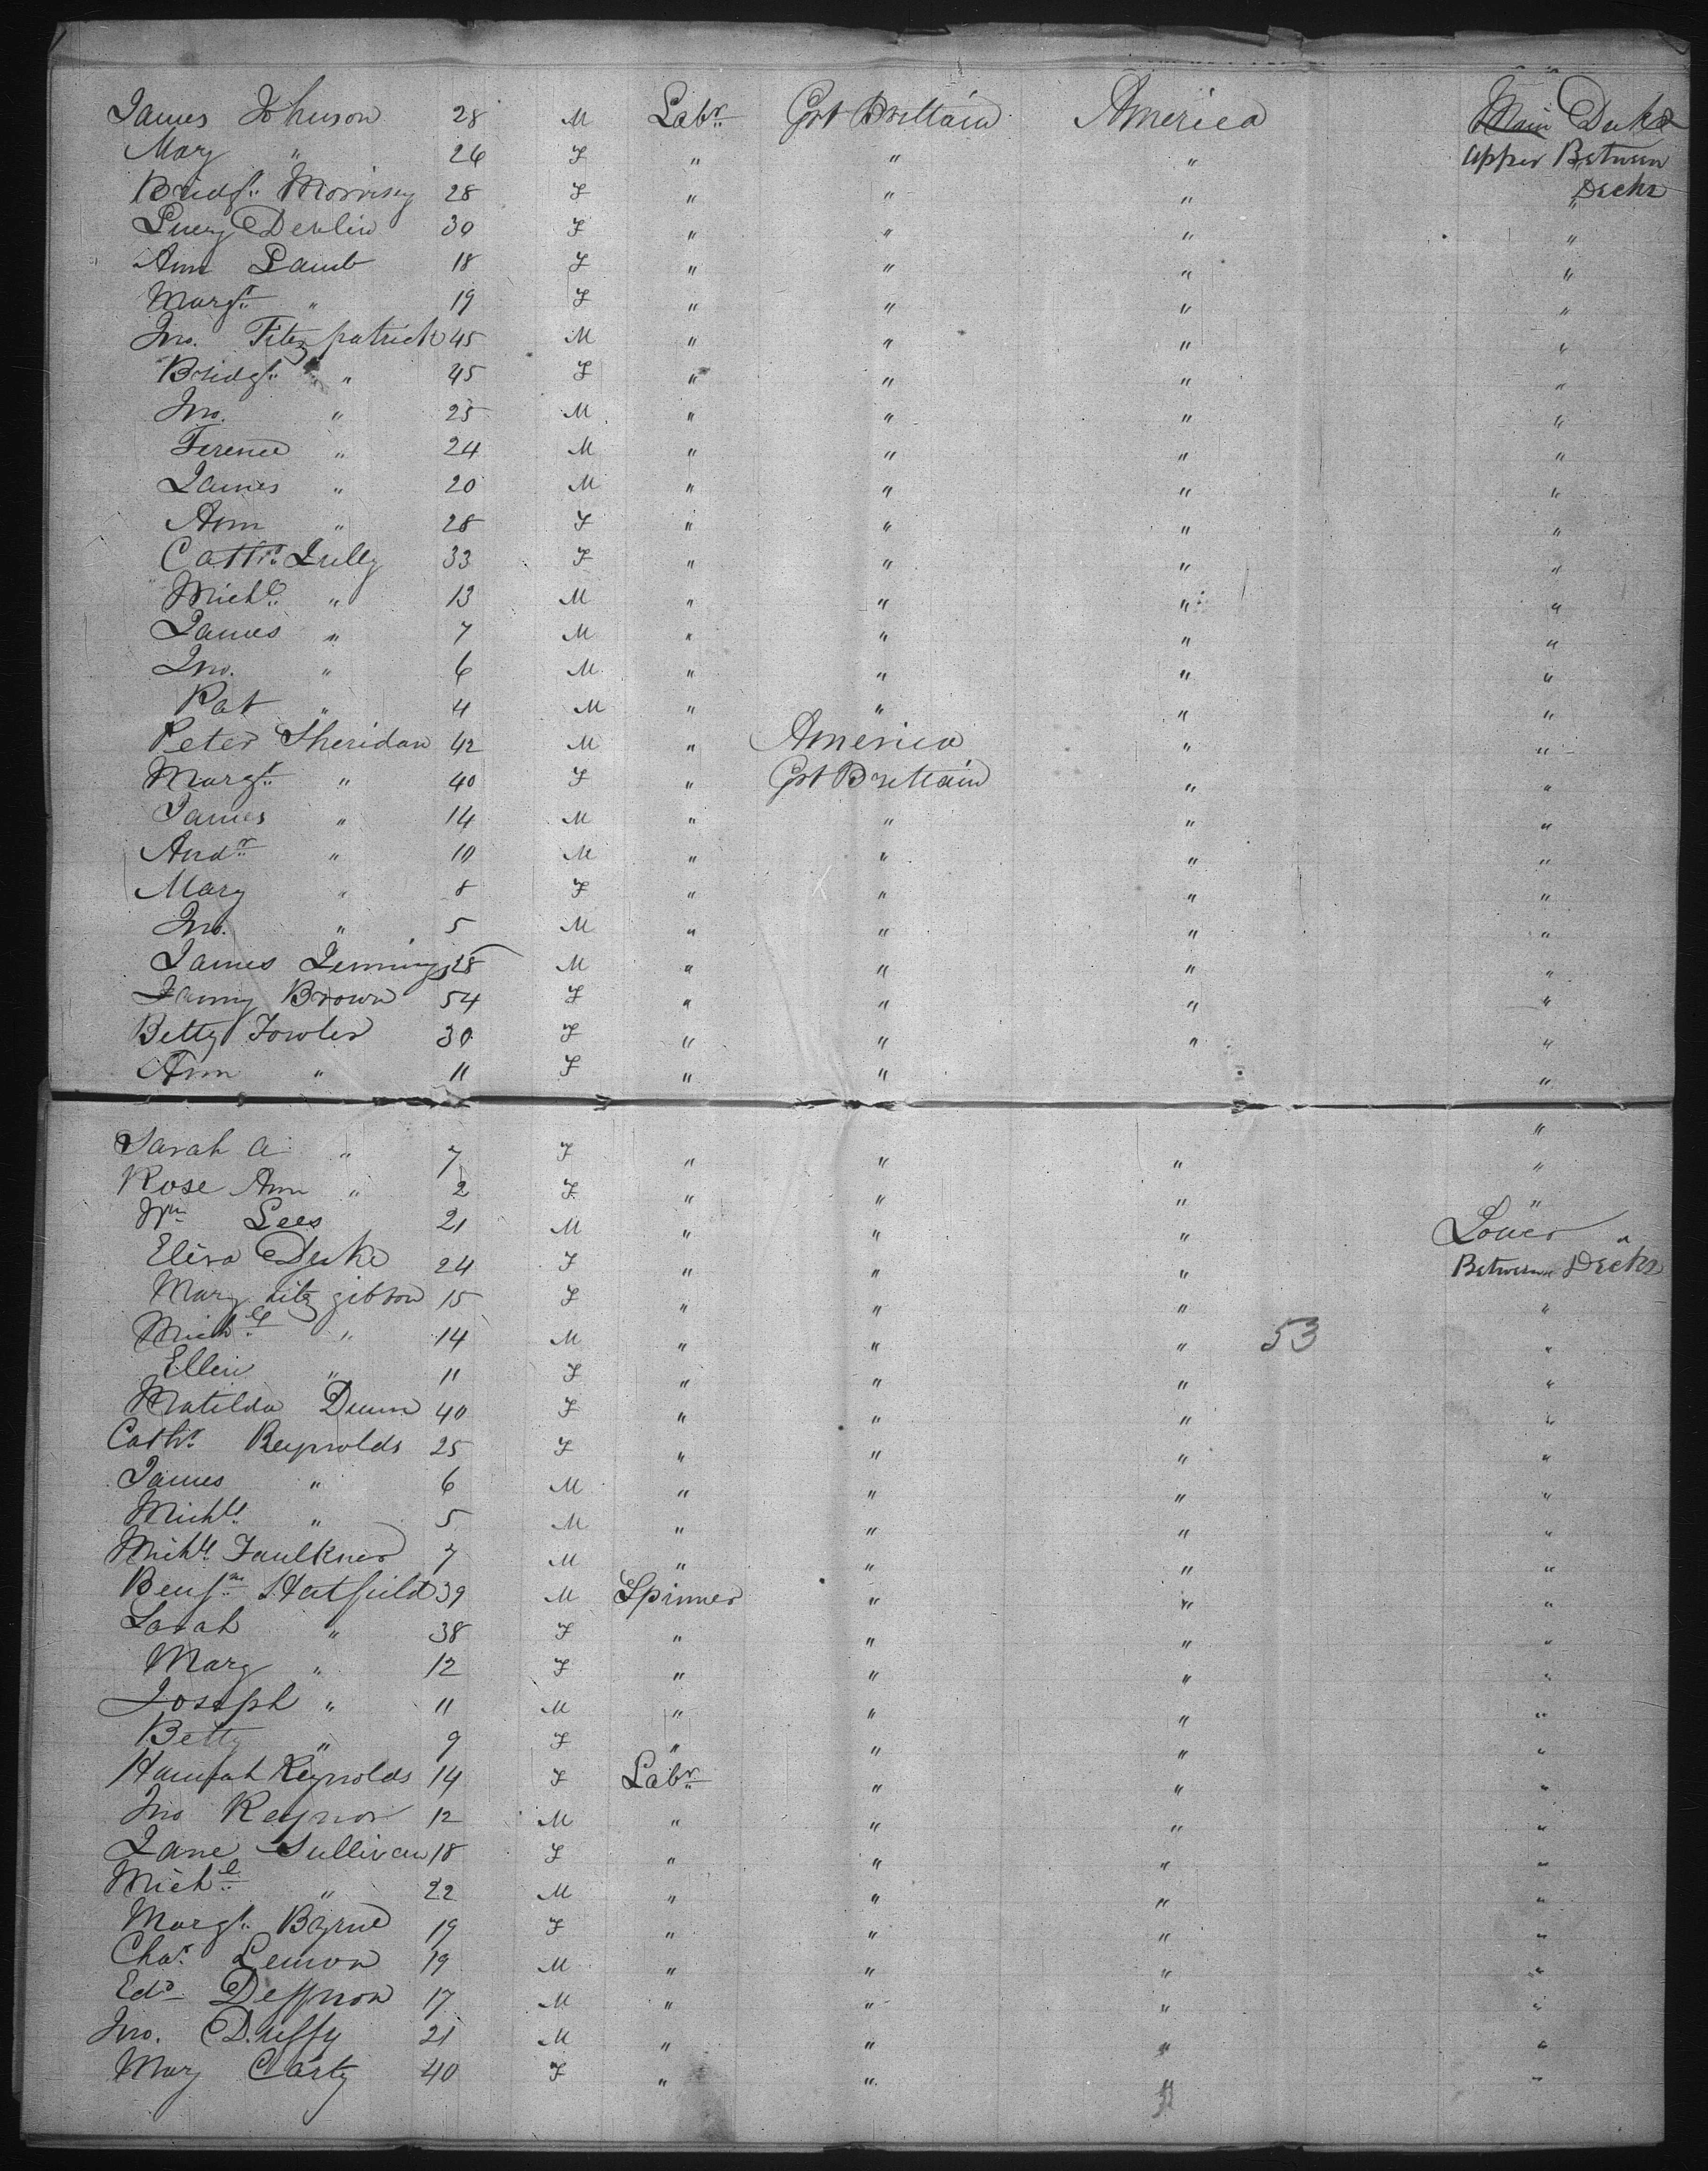 James Johnson 28 M Labr. Grt Brittain America Main Decks
Mary " 26 F " " " Upper Between
Bridgt. Morrisey 28 F " " " Decks "
Lucy Devlin 30 F " " " "
Ann Lamb 18 F " " " "
Margt. " 19 F " " " "
Jno. Fitzpatrick 45 M " " " "
Bridgt. " 45 F " " " "
Jno. " 25 M " " " "
Terence " 24 M " " " "
James " 20 M " " " "
Ann " 28 F " " " "
Cathr. Lully 33 F " " " "
Michl. " 13 M " " " "
James " 7 M " " " "
Jno. " 6 M " " " "
Pat " 4 M " " " "
Peter Sheridan 42 M " America " "
Margt. " 40 F " Grt Brittain " "
James " 14 M " " " "
Andr. " 10 M " " " "
Mary " 8 F " " " "
Jno. " 5 M " " " "
James Jennings 28 M " " " "
Fanny Brown 54 F " " " "
Betty Fowler 30 F " " " "
Ann " 11 F " " "
"
Sarah A " 7 F " " " "
Rose Ann " 2 F " " " "
Wm Lees 21 M " " " Lower "
Eliza Duke 24 F " " " Between Decks
Mary Fitzgibbon 15 F " " " "
Michl. " 14 M " " " 53 "
Ellen " 11 F " " " "
Matilda Dunn 40 F " " " "
Cathr. Reynolds 25 F " " " "
James " 6 M " " " "
Michl. " 5 M " " " "
Michl. Faulkner 7 M " " " "
Benjm. Hatfield 39 M Spinner " " "
Sarah " 38 F " " " "
Mary " 12 F " " " "
Joseph " 11 M " " " "
Betty " 9 F " " " "
Hannah Reynolds 14 F Labr. " " "
Jno Reynor 12 M " " " "
Jane Sullivan 18 F " " " "
Michl. " 22 M " " " "
Margt. Byrne 19 F " " " "
Chas. Lemon 19 M " " " "
Edd 17 M " " " "
Jno. Duffy 21 M " " " "
Mary Carty 40 F " " " "